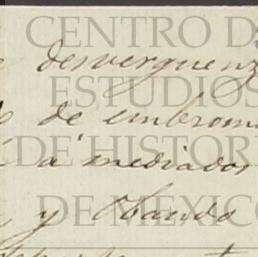 CENTRO D
desverguenz
ESTUDIOS
de embrom
DE HISTOR
á mediados
DE MEXICO
y Obando